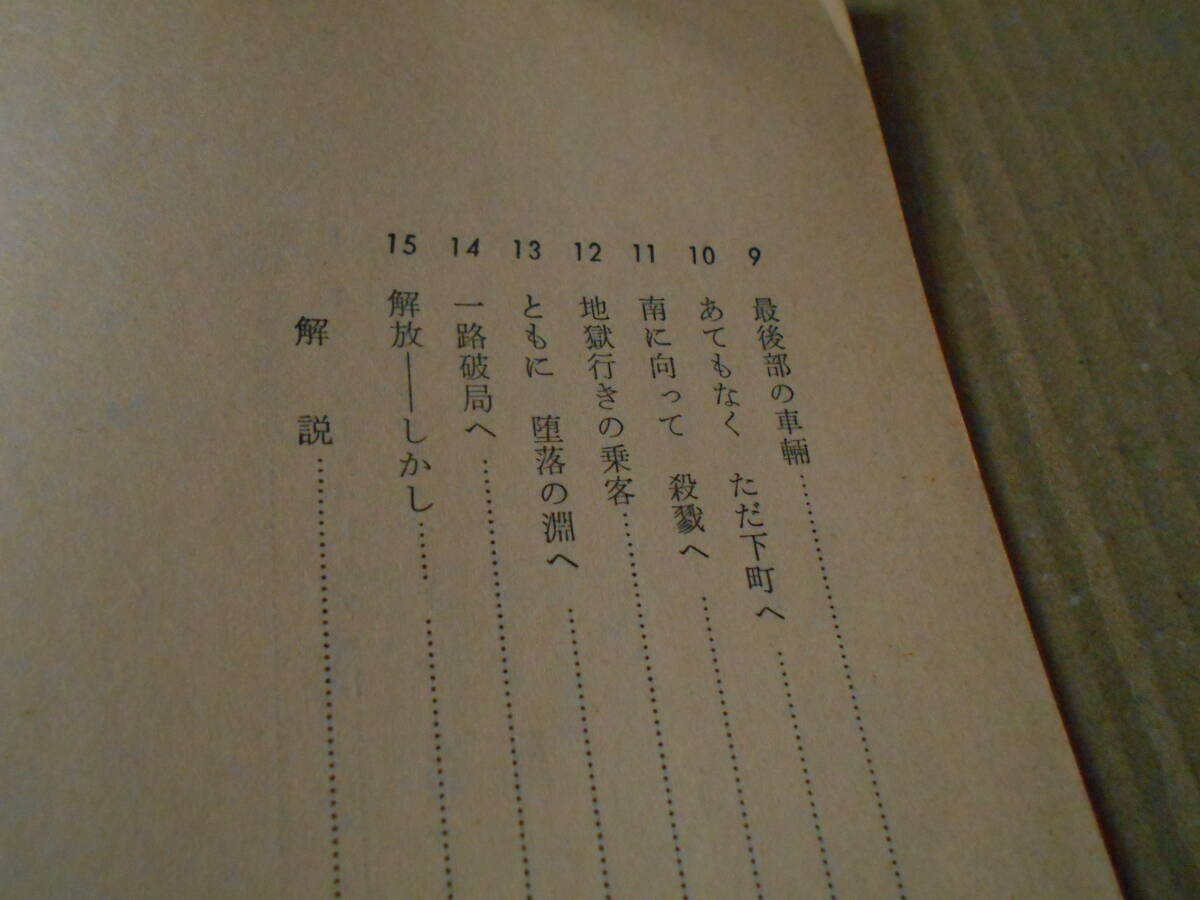 9 最後部の車輛…………
10 あてもなく ただ下町へ…………
11 南に向って 殺戮へ…………
12 地獄行きの乗客…………
13 ともに 堕落の淵へ…………
14 一路破局へ…………
15 解放――しかし…… …………
解説…………